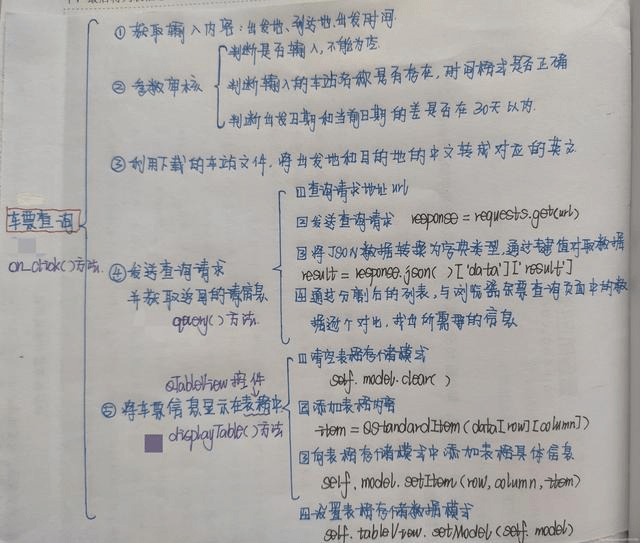 ① 获取输入内容：出发地、到达地、出发时间.
判断是否输入，不能为空.
② 参数审核
判断输入的车站名称是否存在，时间格式是否正确
判断出发日期和当前日期的差是否在30天以内.
③ 利用下载的车站文件，将出发地和目的地的中文转成对应的英文.
车票查询
on_click()方法.
④ 发送查询请求
并获取返回的请信息
query()方法.
① 查询请求地址url
② 发送查询请求 response = requests.get(url)
③ 将JSON数据转换为字典类型，通过键值对取数据
result = response.json( )['data']['result']
④ 通过分割后的列表，与浏览器车票查询页面中的数
据逐个对比，找出所需要的信息
QTableView控件
⑤ 将车票信息显示在表格中
displayTable()方法
① 清空表格存储模式
self.model.clear( )
② 添加表格内容
item = QStandardItem(data[row][column])
③ 向表格存储模式中添加表格具体信息
self.model.setItem(row, column, item)
④ 设置表格存储数据模式
self.tableView.setModel(self.model)